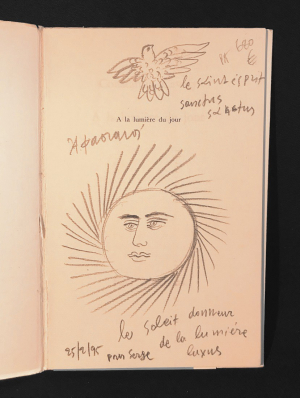 le saint esprit
sanctus
A la lumière du jour
le soleil donneur
de la lumière
luxus
25/2/95 pour Serge